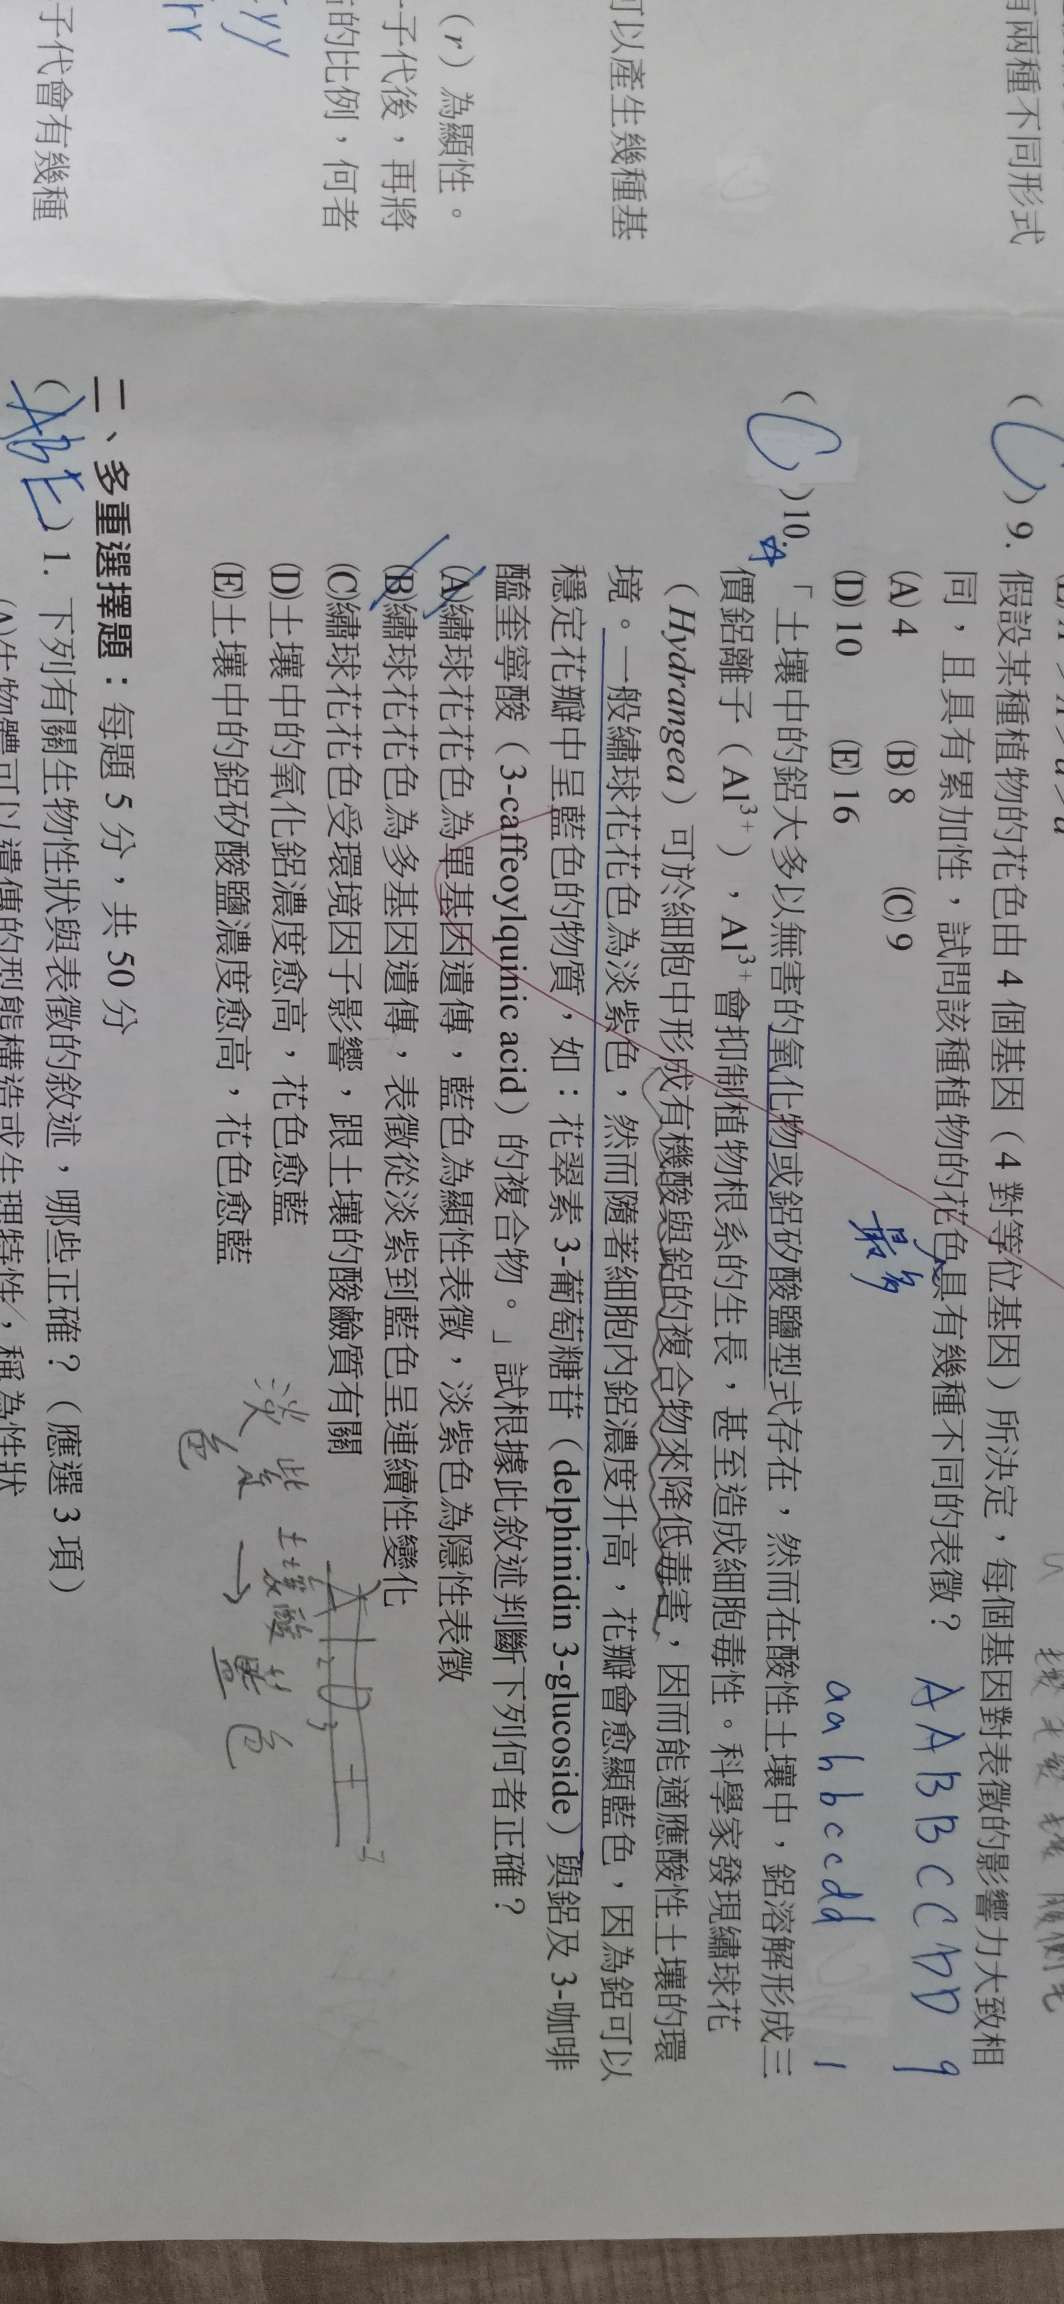 有兩種不同形式
可以產生幾種基
（r）為顯性。
子代後，再將
的比例，何者
yy
rr
子代會有幾種
(C) 9. 假設某種植物的花色由 4 個基因（4 對等位基因）所決定，每個基因對表徵的影響力大致相
同，且具有累加性，試問該種植物的花色具有幾種不同的表徵？ AABBCCDD 9
最多
(A) 4 (B) 8 (C) 9
(D) 10 (E) 16 aabbccdd 1
(C) 10. 「土壤中的鋁大多以無害的氧化物或鋁矽酸鹽型式存在，然而在酸性土壤中，鋁溶解形成三
價鋁離子（Al³⁺），Al³⁺會抑制植物根系的生長，甚至造成細胞毒性。科學家發現繡球花
（Hydrangea）可於細胞中形成有機酸與鋁的複合物來降低毒害，因而能適應酸性土壤的環
境。一般繡球花花色為淡紫色，然而隨著細胞內鋁濃度升高，花瓣會愈顯藍色，因為鋁可以
穩定花瓣中呈藍色的物質，如：花翠素 3-葡萄糖苷（delphinidin 3-glucoside）與鋁及 3-咖啡
醯奎寧酸（3-caffeoylquinic acid）的複合物。」試根據此敘述判斷下列何者正確？
(A)繡球花花色為單基因遺傳，藍色為顯性表徵，淡紫色為隱性表徵
(B)繡球花花色為多基因遺傳，表徵從淡紫到藍色呈連續性變化
(C)繡球花花色受環境因子影響，跟土壤的酸鹼質有關
(D)土壤中的氧化鋁濃度愈高，花色愈藍
(E)土壤中的鋁矽酸鹽濃度愈高，花色愈藍
土壤酸
淡紫色 → 藍色
二、多重選擇題：每題 5 分，共 50 分
(ABE) 1. 下列有關生物性狀與表徵的敘述，哪些正確？（應選 3 項）
(A)生物體可以遺傳的型態構造或生理特性，稱為性狀